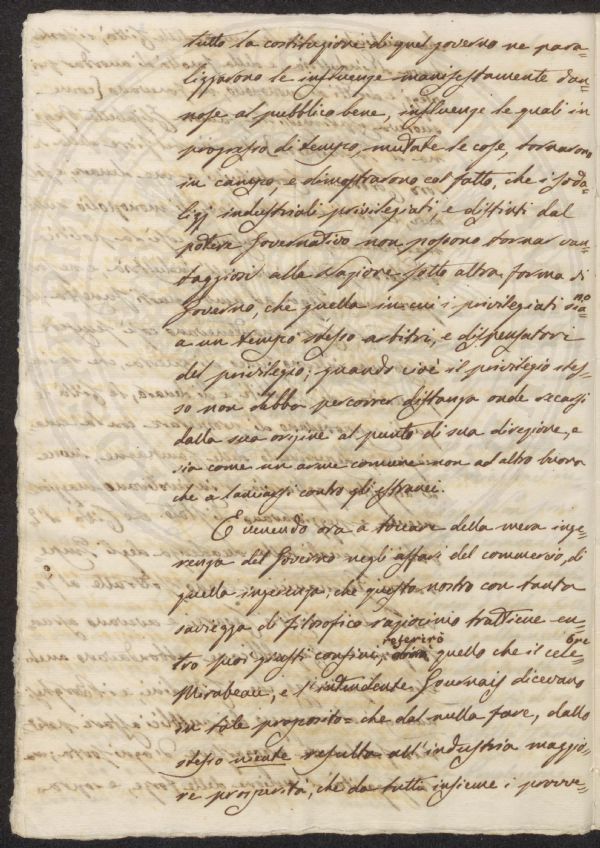 tutto la costituzione di quel governo ne para=
lizzarono le influenze manifestamente dan=
nose al pubblico bene, influenze le quali in
progresso di tempo, mutate le cose, tornarono
in campo e dimostrarono col fatto, che i soda=
lizj industriali privilegiati, e distinti dal
potere Governativo non possono tornar van=
taggiosi alla Nazione sotto altra forma di
Governo, che quella in cui i privilegiati sia=
no
a un tempo stesso arbitri, e dispensatori
del privilegio; quando cioè il privilegio stes=
so non debba percorrer distanza onde recarsi
dalla sua origine al punto di sua direzione, e
sia come un arme comune non ad altro buona
che a lanciarsi contro gli stranieri.
E venendo ora a toccare della mera inge=
renza del Governo negli affari del commercio, di
quella ingerenza, che questo nostro con tanta
saviezza di filosofico raziocinio trattiene en=
tro suoi giusti confini, riferirò quello che il cele=
bre
Mirabeau, e l'intendente Gournais dicevano
in tale proposito = che dal nulla fare, dallo
stesso niente risulta all'industria maggio=
re prosperità, che da tutti insieme i provve=